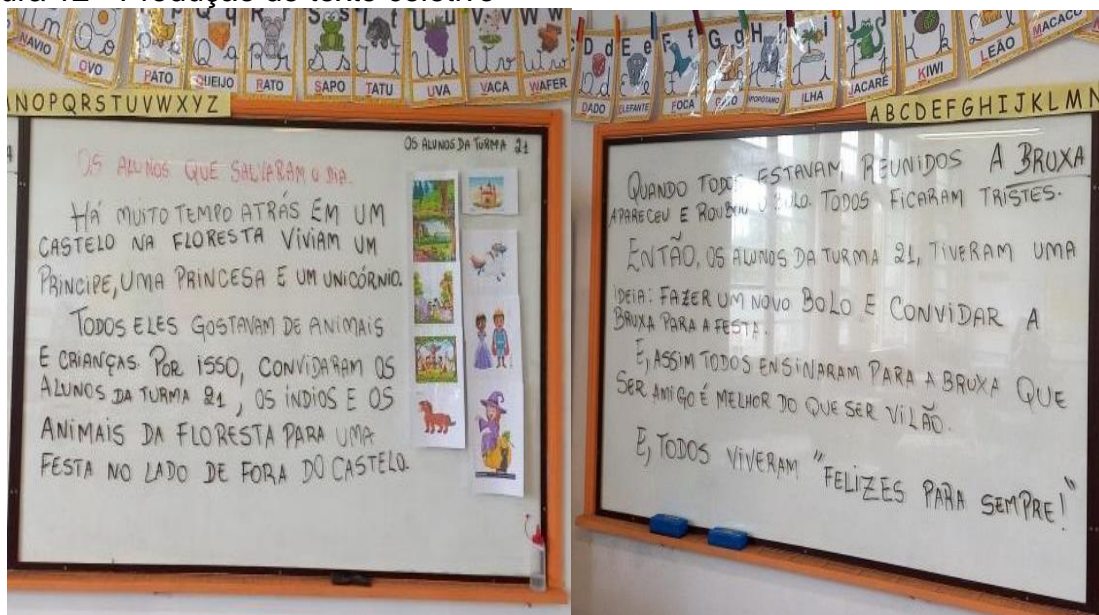 Produção de texto coletivo
NAVIO
OVO
PATO
QUEIJO
RATO
SAPO
TATU
UVA
VACA
WAFER
NOPQRSTUVWXYZ
OS ALUNOS DA TURMA 21
OS ALUNOS QUE SALVARAM O DIA.
HÁ MUITO TEMPO ATRÁS EM UM
CASTELO NA FLORESTA VIVIAM UM
PRÍNCIPE, UMA PRINCESA E UM UNICÓRNIO.
TODOS ELES GOSTAVAM DE ANIMAIS
E CRIANÇAS. POR ISSO, CONVIDARAM OS
ALUNOS DA TURMA 21, OS ÍNDIOS E OS
ANIMAIS DA FLORESTA PARA UMA
FESTA NO LADO DE FORA DO CASTELO.
D d E e F f G g H h I i J j K k
DADO
ELEFANTE
FOCA
GATO
HIPOPÓTAMO
ILHA
JACARÉ
KIWI
LEÃO
MACACO
ABCDEFGHIJKLMN
QUANDO TODOS ESTAVAM REUNIDOS A BRUXA
APARECEU E ROUBOU O BOLO. TODOS FICARAM TRISTES.
ENTÃO, OS ALUNOS DA TURMA 21, TIVERAM UMA
IDEIA: FAZER UM NOVO BOLO E CONVIDAR A
BRUXA PARA A FESTA.
E, ASSIM TODOS ENSINARAM PARA A BRUXA QUE
SER AMIGO É MELHOR DO QUE SER VILÃO.
E, TODOS VIVERAM "FELIZES PARA SEMPRE!"